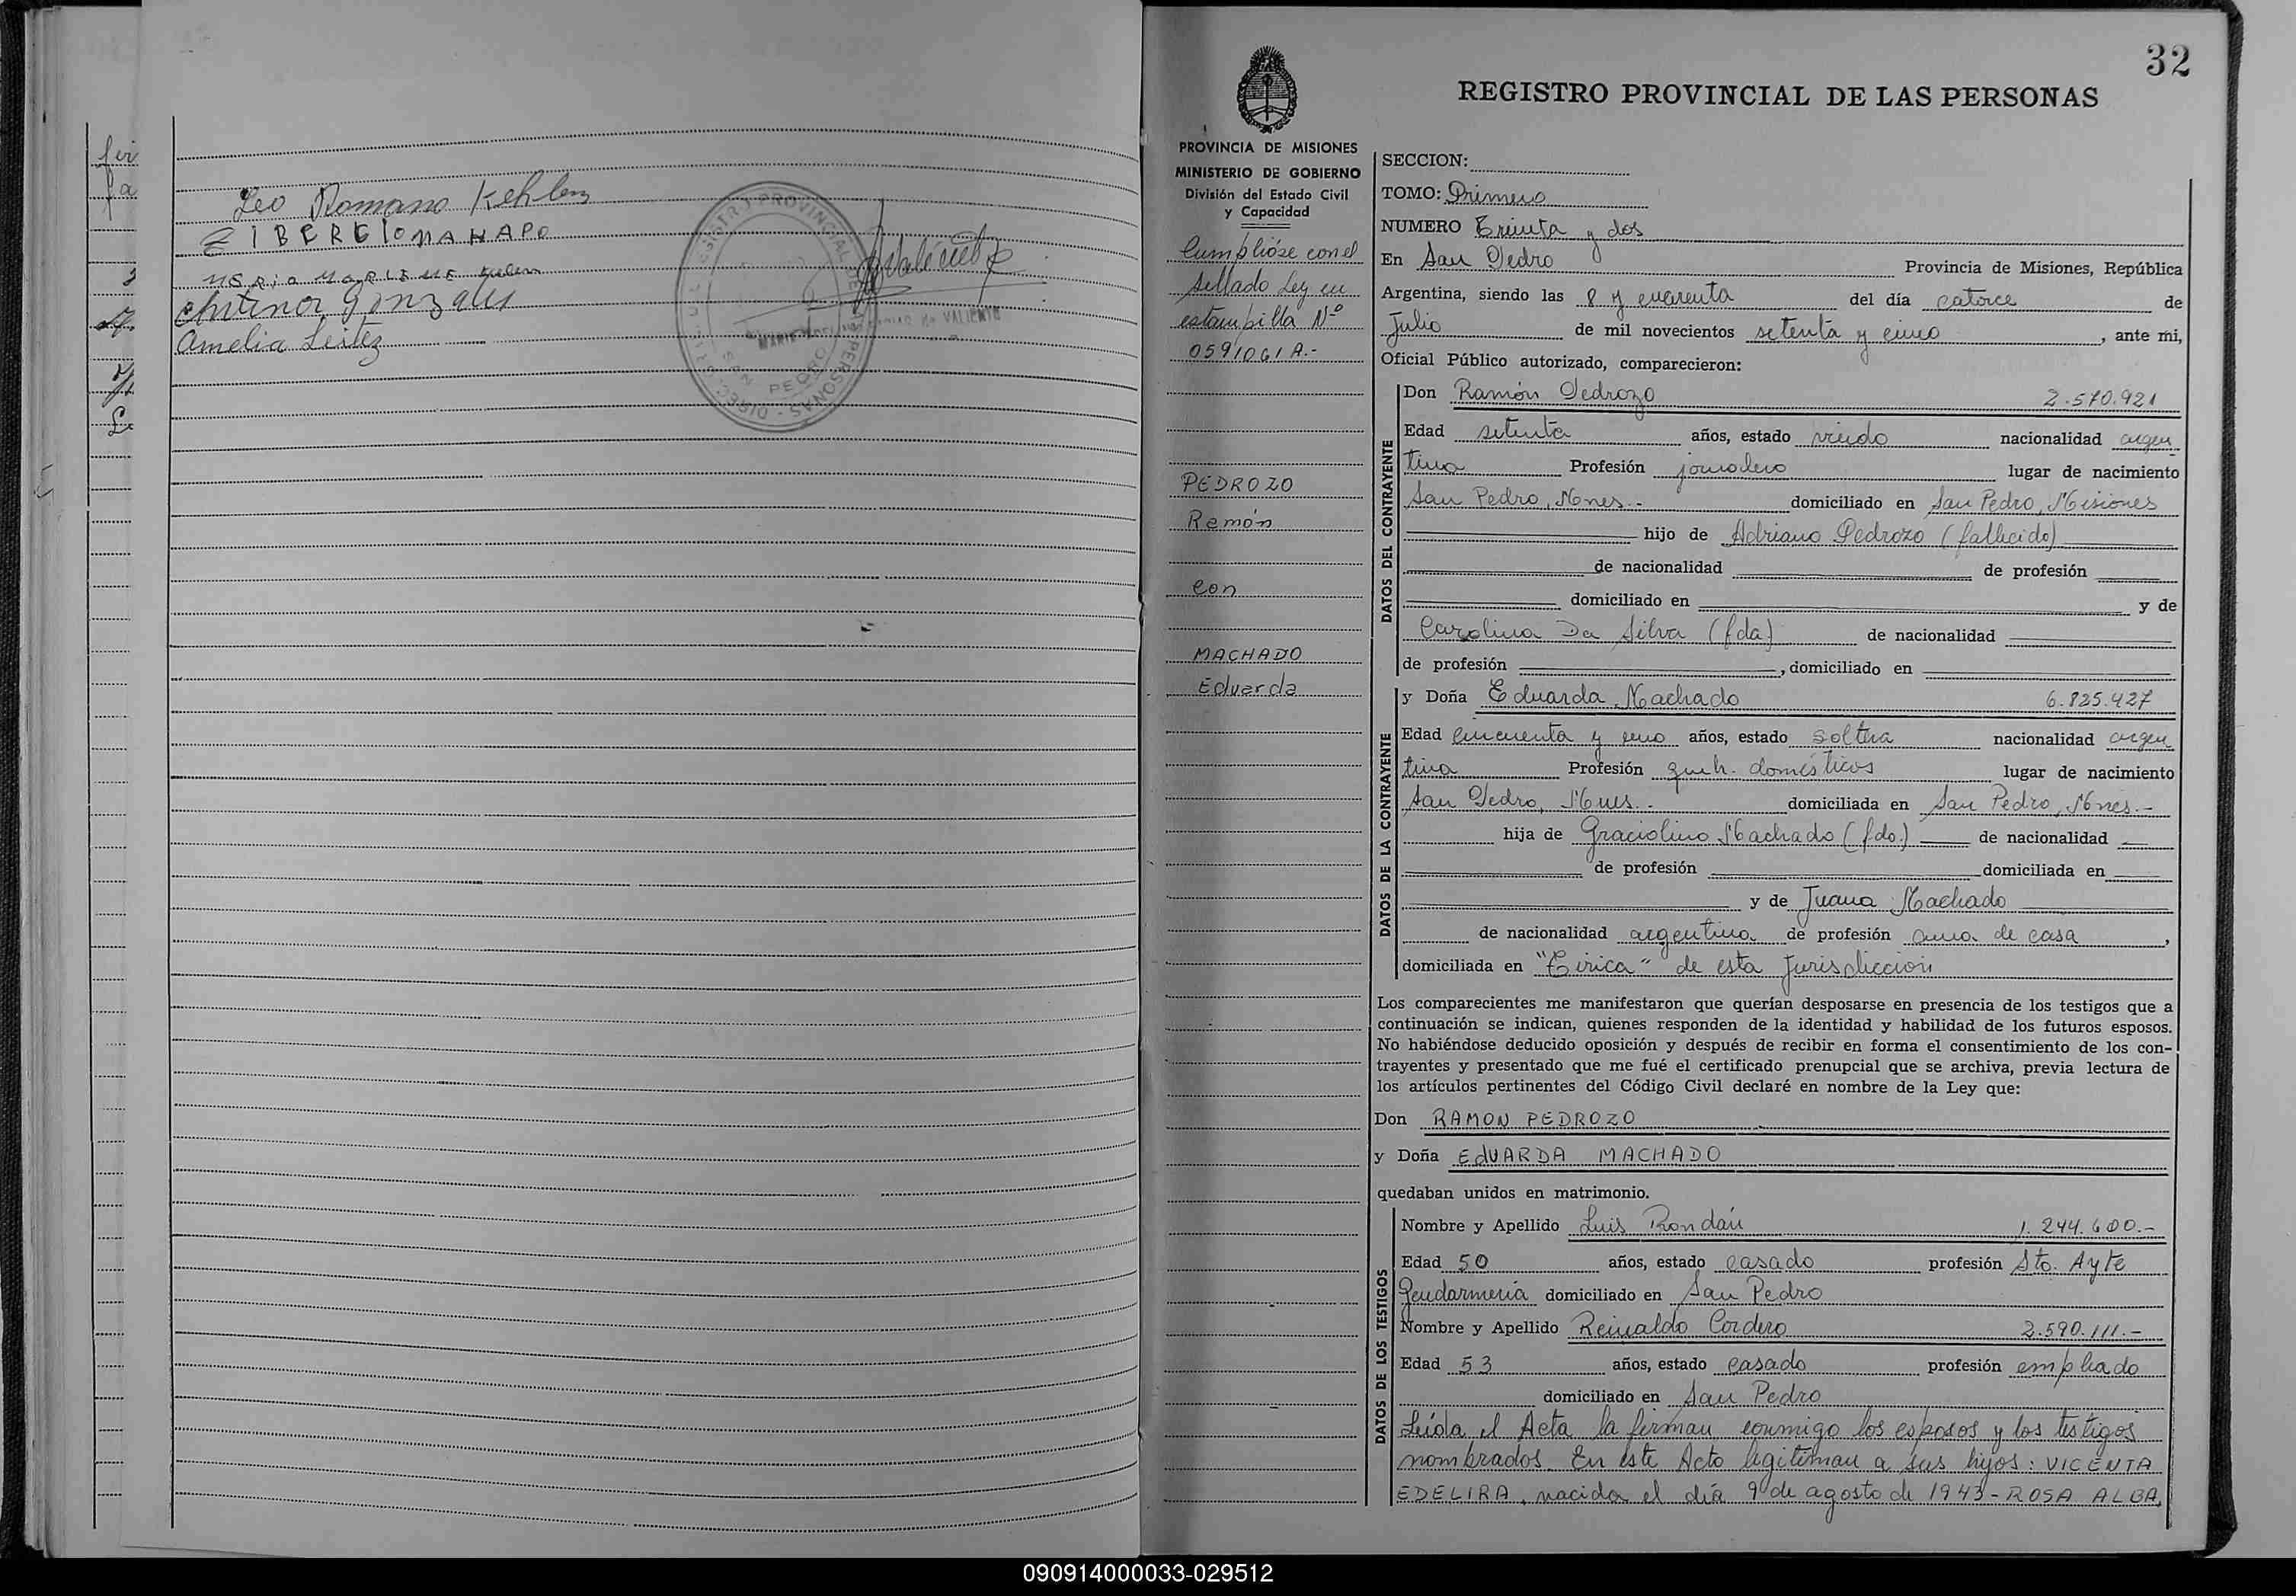 Leo Romano Kehler
Amelia
32
REGISTRO PROVINCIAL DE LAS PERSONAS
PROVINCIA DE MISIONES
MINISTERIO DE GOBIERNO
División del Estado Civil
y Capacidad
Cumplióse con el
sellado Ley en
estampilla Nº
0591061 A.-
PEDROZO
Ramón
con
MACHADO
Eduarda
SECCION:
TOMO: Primero
NUMERO Treinta y dos
En San Pedro Provincia de Misiones, República
Argentina, siendo las 8 y cuarenta del día catorce de
Julio de mil novecientos setenta y cinco, ante mi,
Oficial Público autorizado, comparecieron:
DATOS DEL CONTRAYENTE
Don Ramón Pedrozo 2.570.921
Edad setenta años, estado viudo nacionalidad argen
tina Profesión jornalero lugar de nacimiento
San Pedro, Mnes.- domiciliado en San Pedro, Misiones
hijo de Adriano Pedrozo (fallecido)
de nacionalidad de profesión
domiciliado en y de
Carolina Da Silva (fda) de nacionalidad
de profesión , domiciliado en
DATOS DE LA CONTRAYENTE
y Doña Eduarda Machado 6.825.427
Edad cincuenta y uno años, estado soltera nacionalidad argen
tina Profesión queh. domésticos lugar de nacimiento
San Pedro, Mnes.- domiciliada en San Pedro, Mnes.-
hija de Graciolino Machado (fdo.) de nacionalidad
de profesión domiciliada en
y de Juana Machado
de nacionalidad argentina de profesión ama de casa,
domiciliada en "Tirica" de esta Jurisdicción
Los comparecientes me manifestaron que querían desposarse en presencia de los testigos que a
continuación se indican, quienes responden de la identidad y habilidad de los futuros esposos.
No habiéndose deducido oposición y después de recibir en forma el consentimiento de los con-
trayentes y presentado que me fué el certificado prenupcial que se archiva, previa lectura de
los artículos pertinentes del Código Civil declaré en nombre de la Ley que:
Don RAMON PEDROZO
y Doña EdUARDA MACHADO
quedaban unidos en matrimonio.
DATOS DE LOS TESTIGOS
Nombre y Apellido Luis Rondán 1.244.600.-
Edad 50 años, estado casado profesión Sto. Ayte
Gendarmería domiciliado en San Pedro
Nombre y Apellido Reinaldo Cordero 2.590.111.-
Edad 53 años, estado casado profesión empleado
domiciliado en San Pedro
Leída el Acta la firman conmigo los esposos y los testigos
nombrados En este Acto legitiman a sus hijos: VICENTA
EDELIRA, nacida el día 9 de agosto de 1943 - ROSA ALBA,
090914000033-029512